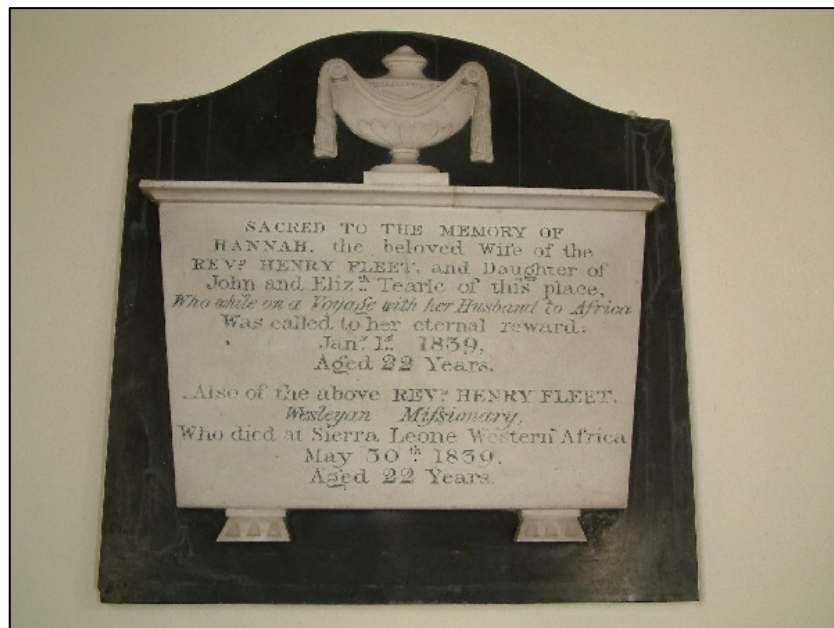 SACRED TO THE MEMORY OF
HANNAH, the beloved Wife of the
REVD. HENRY FLEET, and Daughter of
John and Elizth. Tearle of this place,
Who while on a Voyage with her Husband to Africa
Was called to her eternal reward:
Jany. 1st. 1839,
Aged 22 Years.
Also of the above REVD. HENRY FLEET,
Wesleyan Miſsionary,
Who died at Sierra Leone Western Africa
May 30th. 1839.
Aged 22 Years.